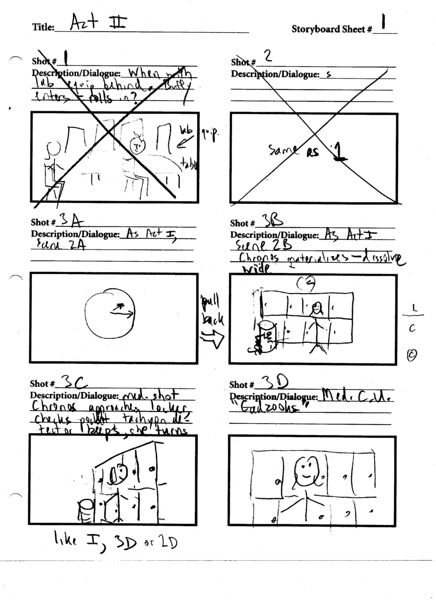 Title: Act II
Storyboard Sheet # 1
Shot # 1
Description/Dialogue: When with
lab equip behind.
enters + rolls in?
lab equip.
table
Shot # 2
Description/Dialogue: s
same as 1
Shot # 3A
Description/Dialogue: As Act I,
Scene 2A
pull
back
Shot # 3B
Description/Dialogue: As Act I
Scene 2B
Chronos materializes — dissolve
wide
L
C
Shot # 3C
Description/Dialogue: med. shot
Chronos approaches locker,
checks tachyon de-
tector beeps, she turns
like I, 3D or 2D
Shot # 3D
Description/Dialogue: Med. C.U.
"Gadzooks"